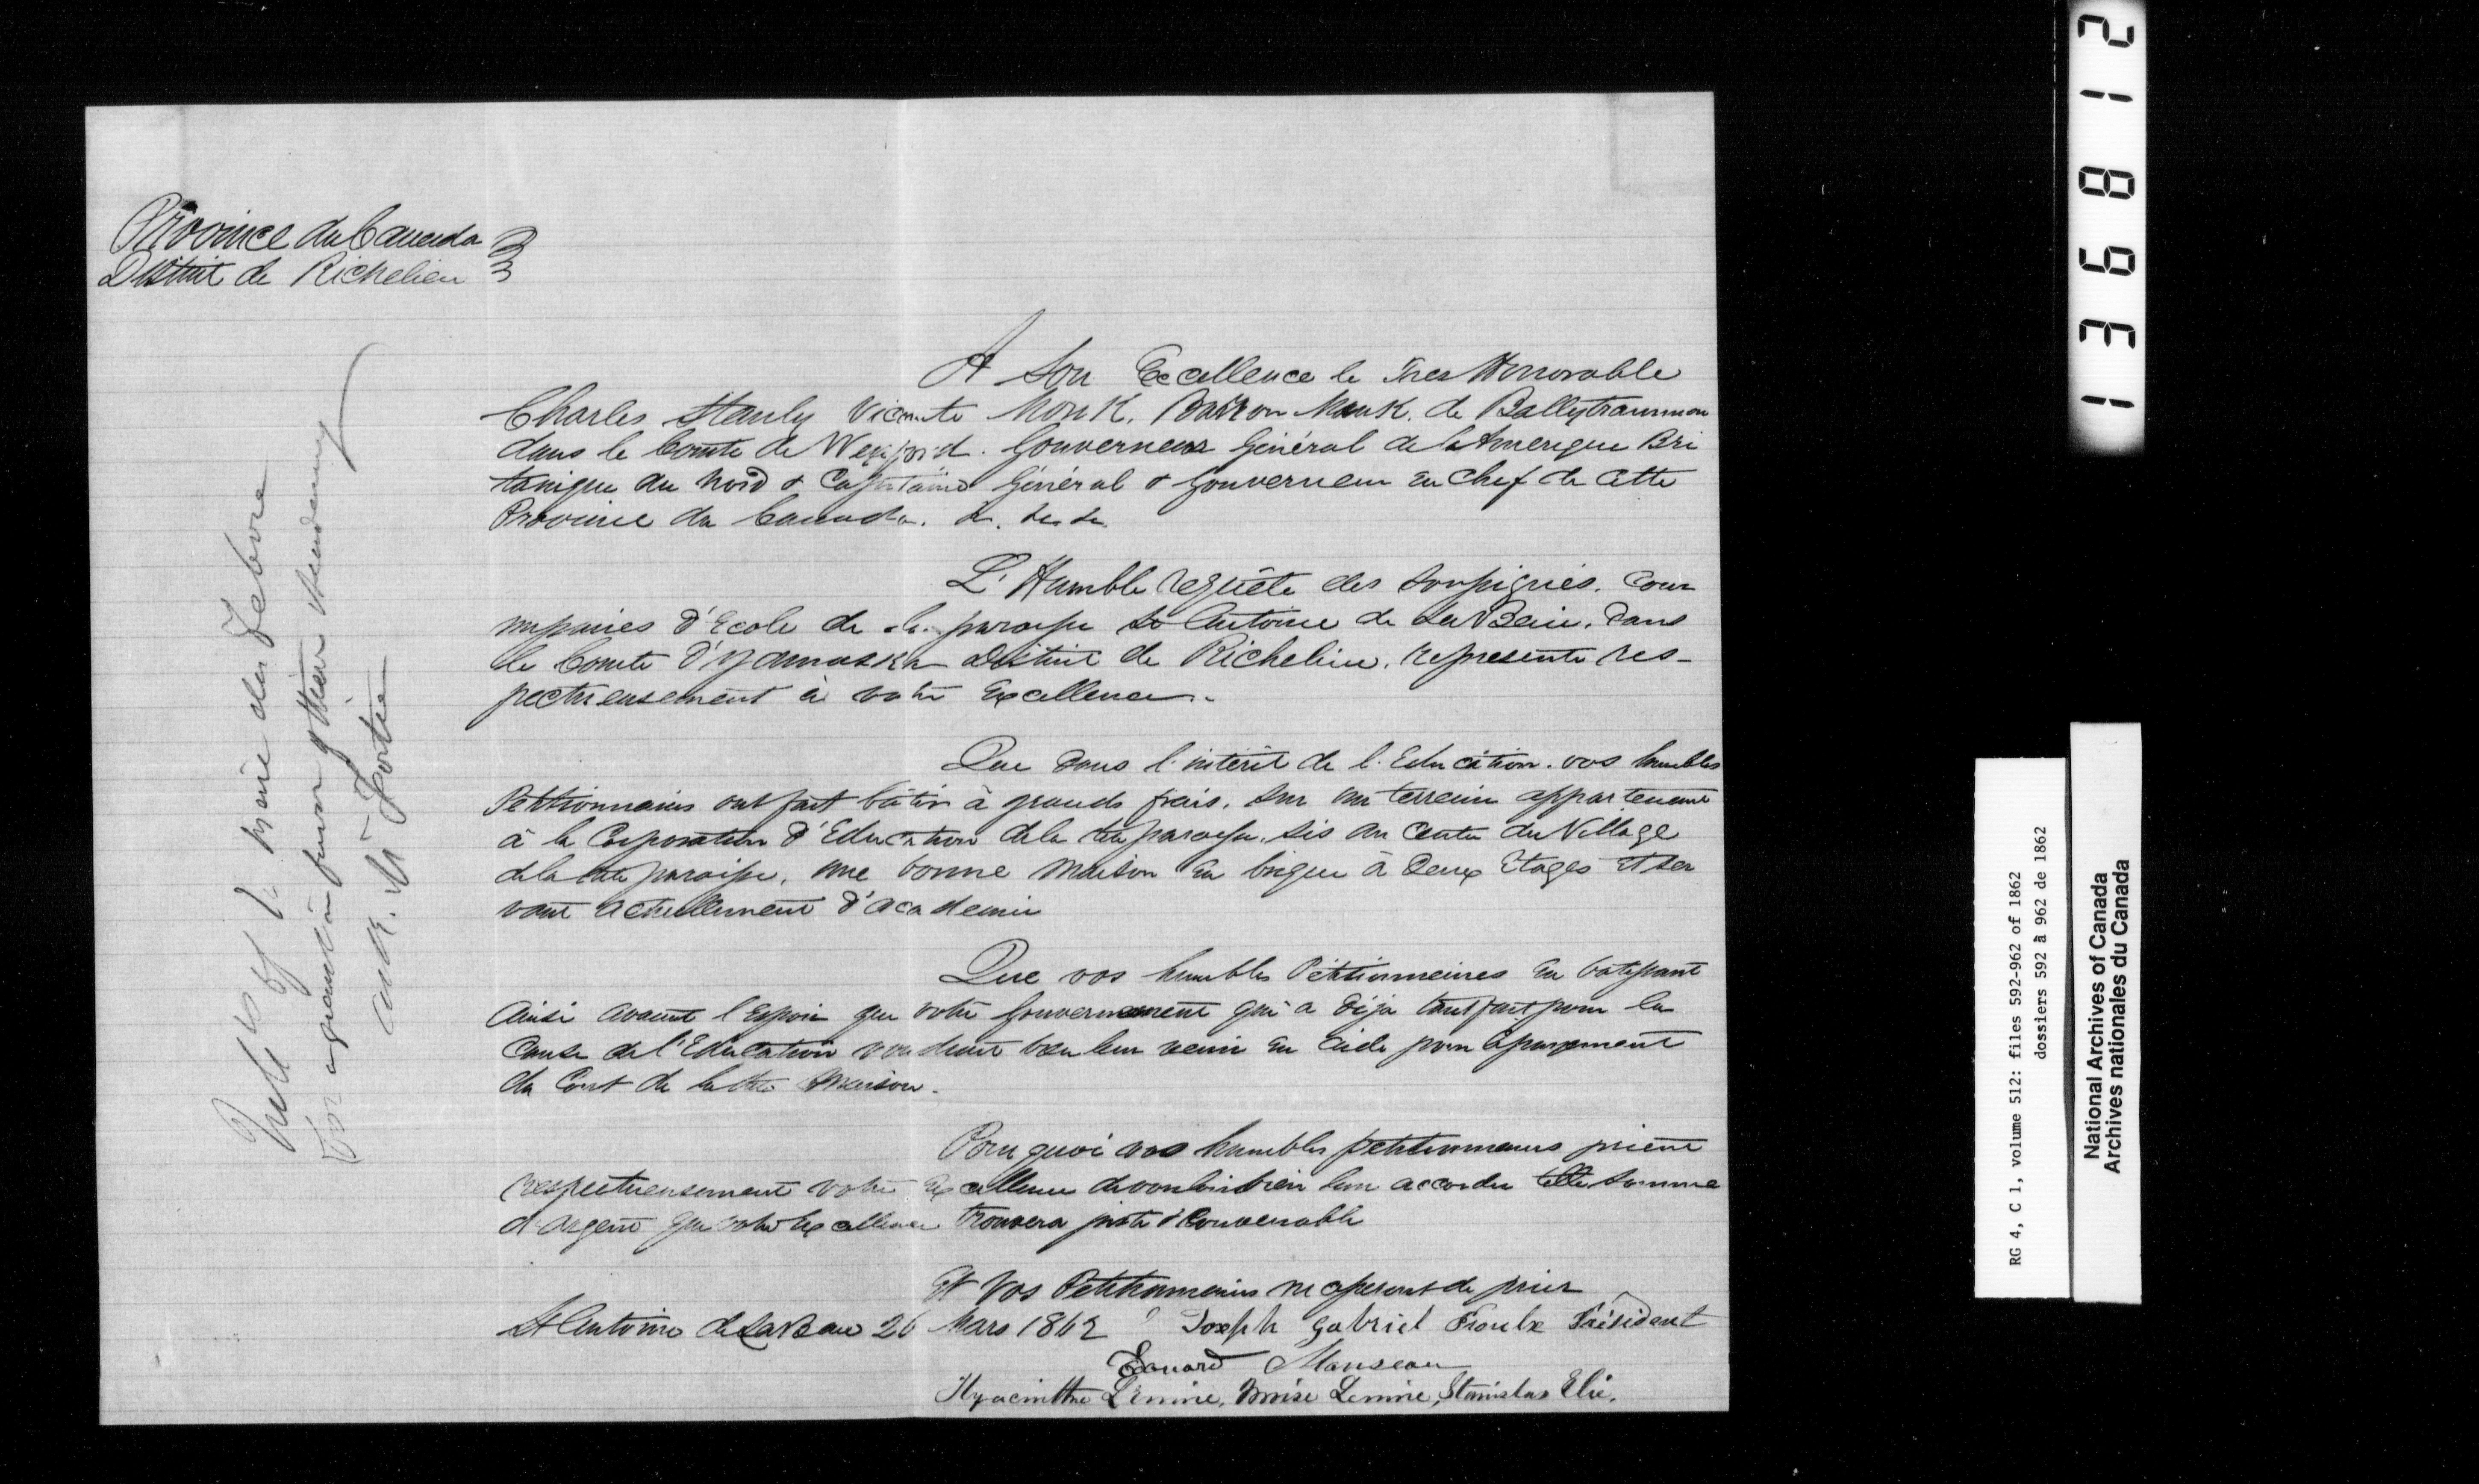 Province du Canada
District de Richelieu
A Son Excellence le Tres Honorable
Charles Stanly Vicomte Monk, Baron Monk, de Ballytrammon
dans le Comté de Wexford. Gouverneur Général de l'Amerique Bri
tanique du Nord & Capitaine Général & Gouverneur en Chef de cette
Province du Canada. &. &c &c
L'Humble requête des soussignés, Com
missaires d'Ecole de la paroisse St Antoine de La Baie, dans
le Comté d'Yamaska District de Richelieu, represente res-
pectueusement à votre Excellence.
Que dans l'intérêt de l'Education. vos humbles
Petitionnaires ont fait bâtir à grands frais, sur un terrein appartenant
à la Corporation d'Education de la dite paroisse, sis au centre du Village
de la dite paroisse, une bonne maison en brique à deux Etages et ser
vant actuellement d'academie
Que vos humbles Pétitionnaires en batissant
ainsi avaient l'Espoir que votre Gouvernement qui a déja tant fait pour la
cause de l'Education voudrait bien leur venir en aide pour
du Cout de la dite maison.
Pourquoi vos humbles petitionnaires prient
respectueusement votre Excellence de vouloir bien leur accorder telle somme
d'argent que votre Excellence trouvera juste & convenable
Et Vos Petitionnaires ne cesseront de prier
St Antoine de La Baie 26 Mars 1862 Joseph Gabriel Proulx Président
Edouard Manseau
Hyacinthe Lemire, Moïse Lemire, Stanislas Elie.
de Lefebvre
Fortier
136812
RG 4, C 1, volume 512: files 592-962 of 1862
dossiers 592 à 962 de 1862
National Archives of Canada
Archives nationales du Canada